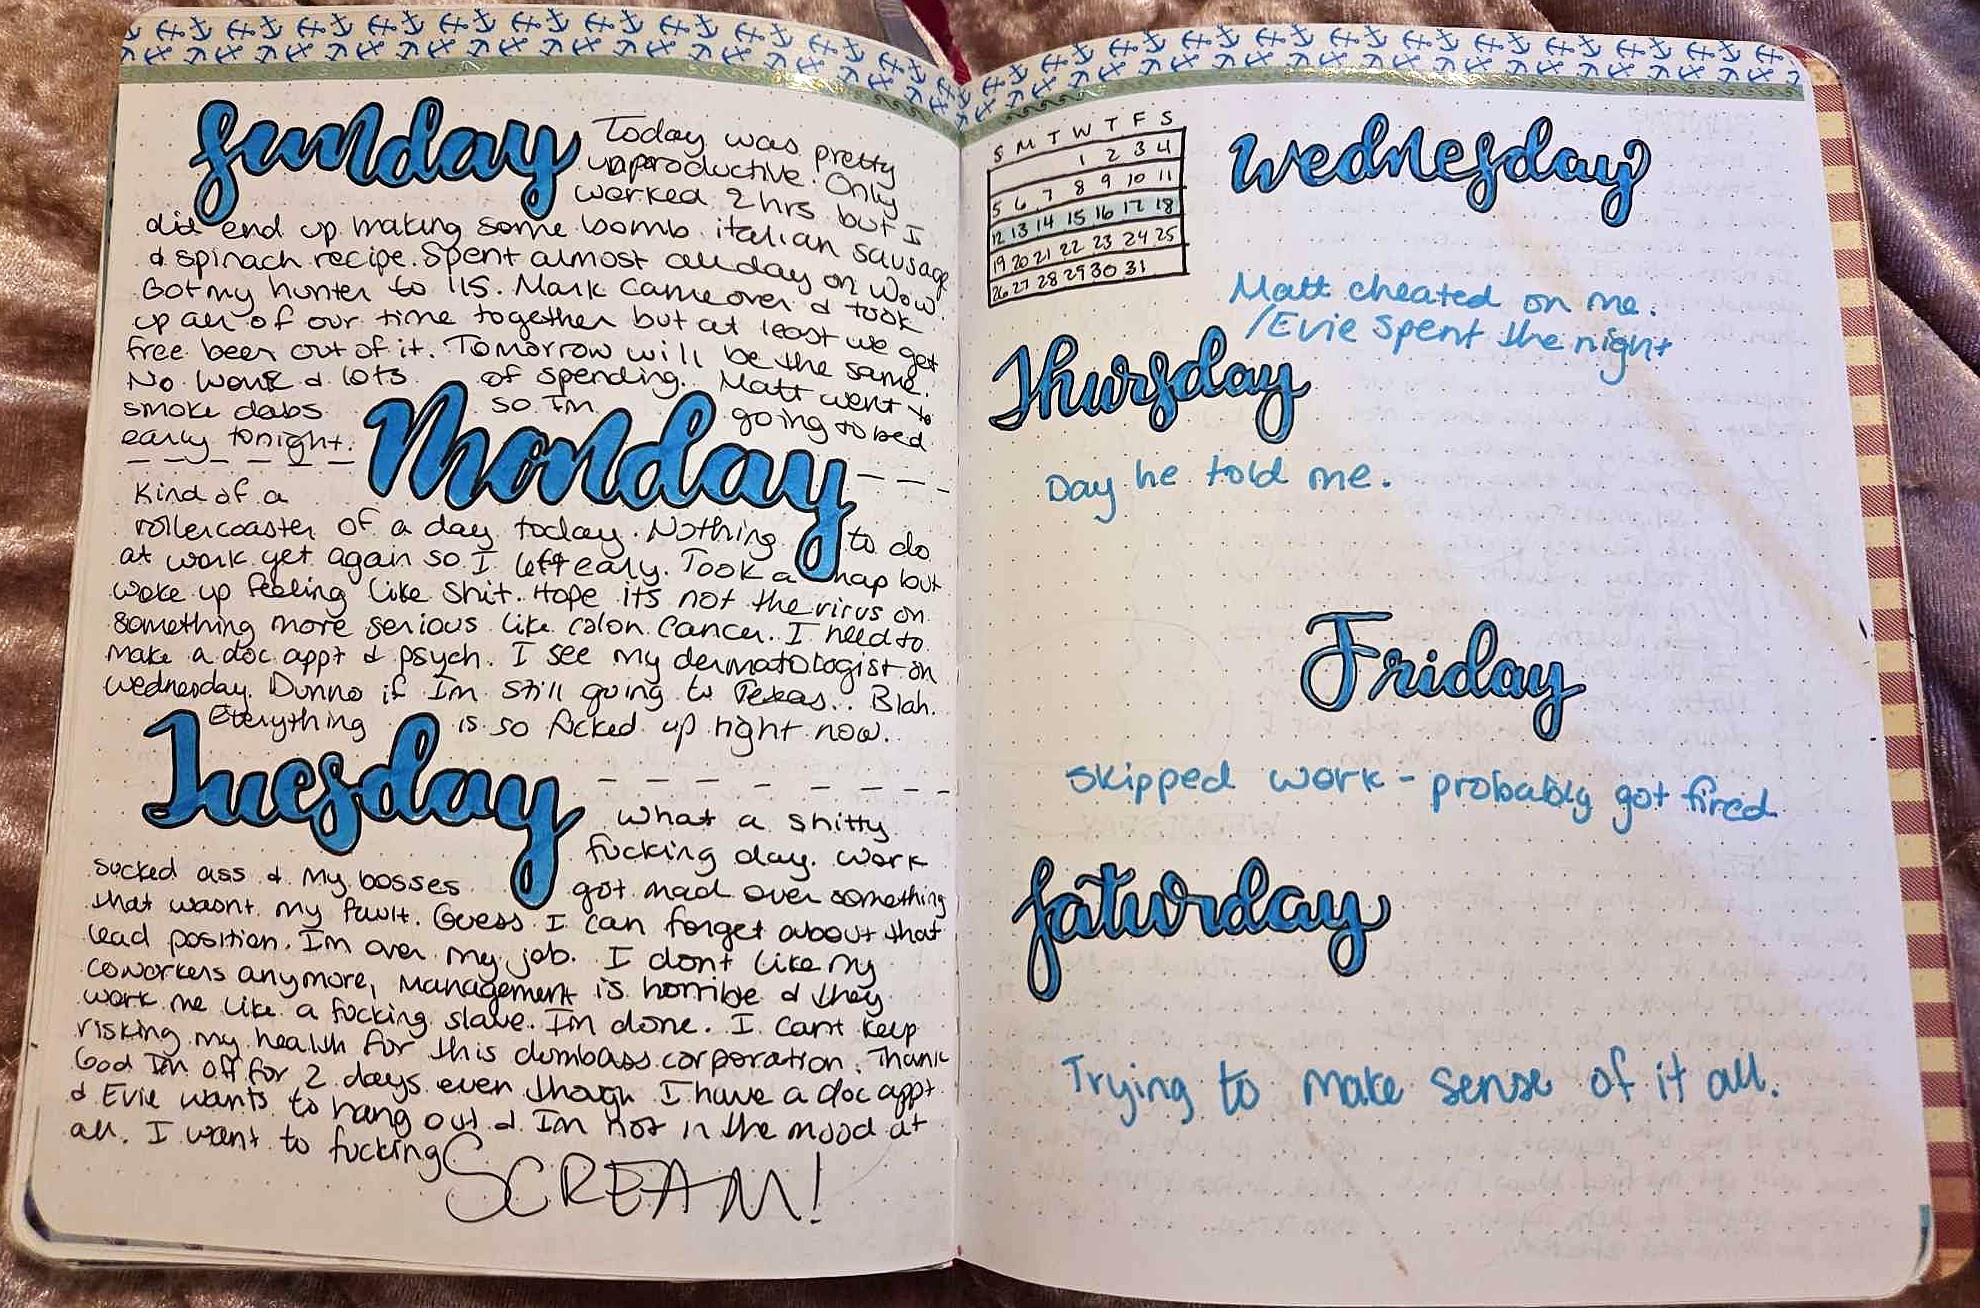 Sunday
Today was pretty
unproductive. Only
worked 2 hrs but I
did end up making some bomb italian sausage
& spinach recipe. Spent almost all day on WoW.
Got my hunter to 115. Mark came over & took
up all of our time together but at least we get
free beer out of it. Tomorrow will be the same.
No work & lots of spending. Matt went to
smoke dabs so Im going to bed
early tonight.
Monday
Kind of a
rollercoaster of a day today. Nothing to do
at work yet again so I left early. Took a nap but
woke up feeling like shit. Hope its not the virus or
something more serious like colon cancer. I need to
make a doc appt & psych. I see my dermatologist on
Wednesday. Dunno if Im still going to Texas.. Blah.
Everything is so fucked up right now.
Tuesday
What a shitty
fucking day. Work
sucked ass & my bosses got mad over something
that wasnt my fault. Guess I can forget about that
lead position. Im over my job. I dont like my
coworkers anymore, management is horrible & they
work me like a fucking slave. Im done. I cant keep
risking my health for this dumbass corporation. Thank
God Im off for 2 days even though I have a doc appt
& Evie wants to hang out & Im not in the mood at
all. I want to fucking SCREAM!
S M T W T F S
1 2 3 4
5 6 7 8 9 10 11
12 13 14 15 16 17 18
19 20 21 22 23 24 25
26 27 28 29 30 31
Wednesday
Matt cheated on me.
/Evie spent the night
Thursday
Day he told me.
Friday
Skipped work - probably got fired
Saturday
Trying to make sense of it all.